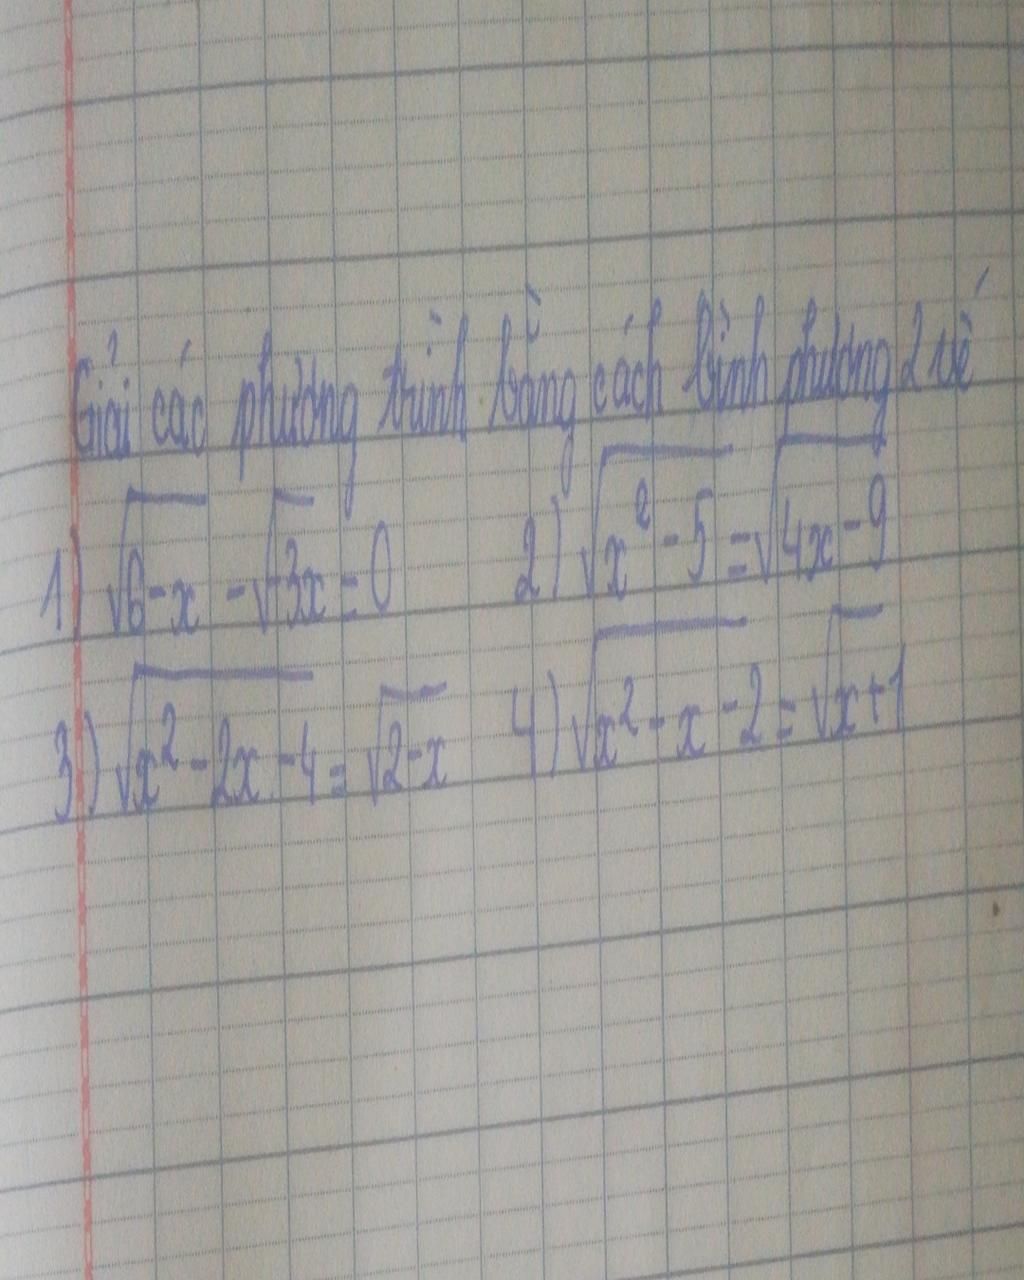 Giải các phương trình bằng cách bình phương 2 vế
1) √6-x - √-3x = 0 2) √x² - 5 = √4x - 9
3) √x² - 2x - 4 = √2-x 4) √x² - x - 2 = √x+1